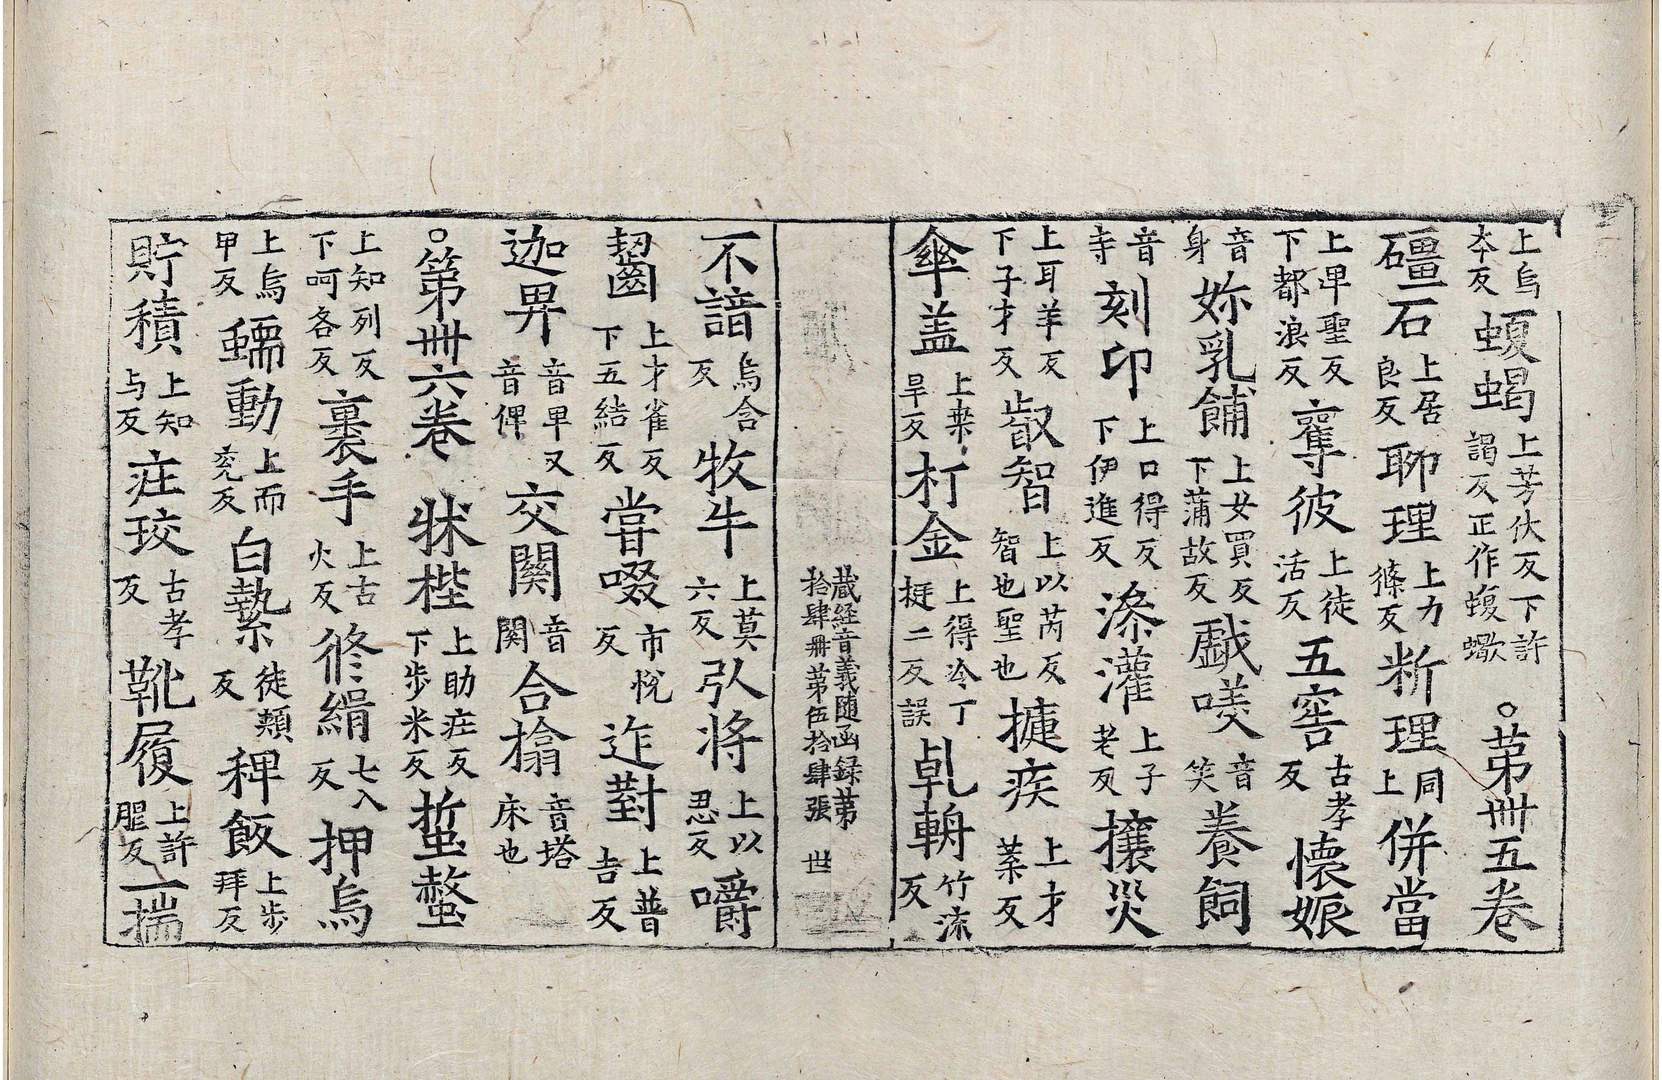 上烏本反蝮蝎上芳伏反下許謁反正作蝮蠍○苐卌五卷
礓石上居良反聊理上力條反㫁理同上併當
上卑聖反下都浪反奪彼上徒活反五窖古孝反懐娠
音身妳乳餔上女買反下蒲故反戱唉音笑養飼
音寺刻印上口得反下伊進反溙灌上子老反攘災
上耳羊反下子才反叡智上以芮反智也聖也㨗疾上才葉反
傘盖上桒旱反朾金上得冷丁挺二反誤乹輈竹流反
蔵経音義随函録苐拾肆冊苐伍拾肆張 世
不諳烏含反牧牛上莫六反弘将上以忍反嚼
齧上才雀反下五結反甞啜市悅反迮對上普吉反
迦畀音卑又音俾交關音関合㩉音塔床也
○苐卌六卷 牀梐上助疘反下步米反蜇螫
上知列反下呵各反裹手上古火反修絹七入反押烏
上烏甲反蠕動上而兖反白㲲徒頬反稗飯上步拜反
貯積上知与反疘珓古孝反靴履上許𦚢反一揣